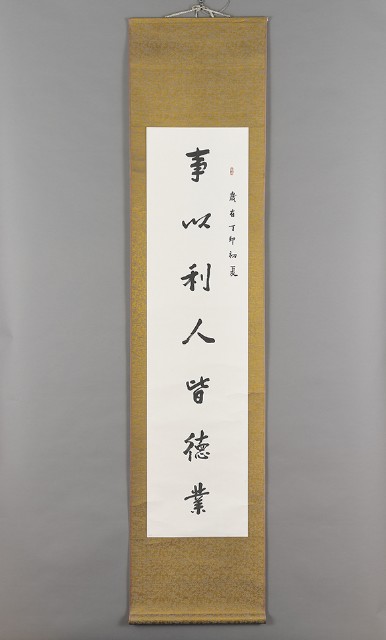 歲在丁卯初夏
事以利人皆德業